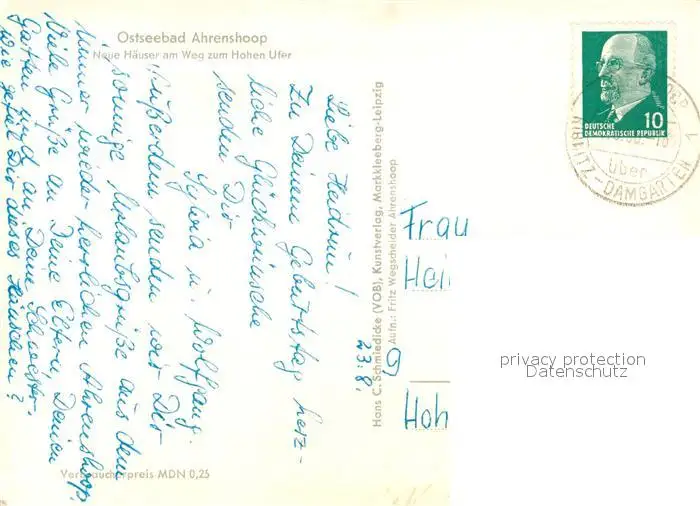 Ostseebad Ahrenshoop
Neue Häuser am Weg zum Hohen Ufer
Liebe Heidrun!
Zu Deinem Geburtstag herz-
liche Glückwünsche
senden Dir
Sylvia u. Wolfgang.
Außerdem senden wir Dir
sonnige Urlaubsgrüße aus dem
immer wieder herrlichen Ahrenshoop.
Viele Grüße an Deine Eltern, Deinen
Gatten und an Deine Schwester.
Wie gefiel Dir dieses Häuschen?
23.8.
Verbraucherpreis MDN 0,25
Hans C. Schmiedicke (VOB), Kunstverlag, Markkleeberg-Leipzig
Aufn.: Fritz Wegscheider Ahrenshoop
DEUTSCHE
DEMOKRATISCHE REPUBLIK
10
über
RIBNITZ-DAMGARTEN
Frau
Hei
Hoh
privacy protection
Datenschutz